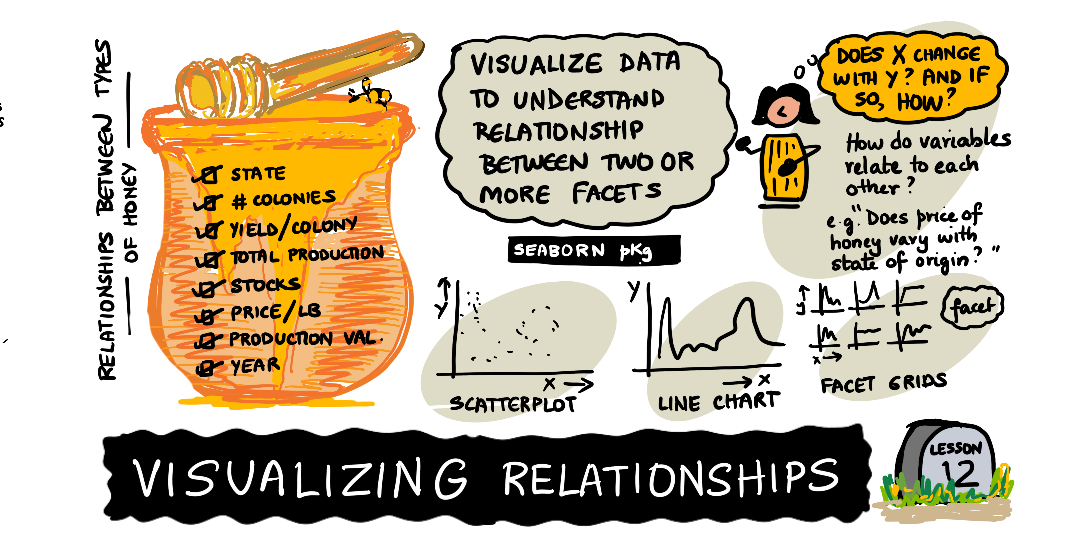 RELATIONSHIPS BETWEEN TYPES
OF HONEY
STATE
# COLONIES
YIELD/COLONY
TOTAL PRODUCTION
STOCKS
PRICE/LB
PRODUCTION VAL.
YEAR
VISUALIZE DATA
TO UNDERSTAND
RELATIONSHIP
BETWEEN TWO OR
MORE FACETS
SEABORN pKg
DOES X CHANGE
WITH Y? AND IF
SO, HOW?
How do variables
relate to each
other?
e.g. "Does price of
honey vary with
state of origin?"
y
x
SCATTERPLOT
y
x
LINE CHART
y
x
facet
FACET GRIDS
VISUALIZING RELATIONSHIPS
LESSON
12